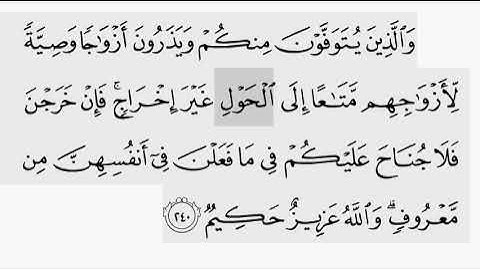 وَٱلَّذِينَ يُتَوَفَّوۡنَ مِنكُمۡ وَيَذَرُونَ أَزۡوَٰجٗا وَصِيَّةٗ
لِّأَزۡوَٰجِهِم مَّتَٰعًا إِلَى ٱلۡحَوۡلِ غَيۡرَ إِخۡرَاجٖۚ فَإِنۡ خَرَجۡنَ
فَلَا جُنَاحَ عَلَيۡكُمۡ فِي مَا فَعَلۡنَ فِيٓ أَنفُسِهِنَّ مِن
مَّعۡرُوفٖۗ وَٱللَّهُ عَزِيزٌ حَكِيمٞ ٢٤٠